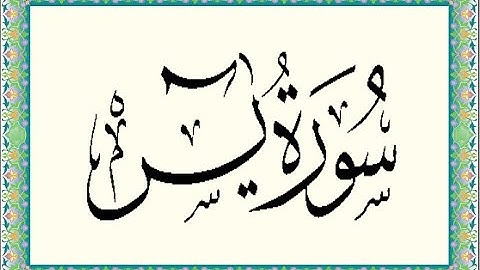 سُورَةُ يٰسٓ